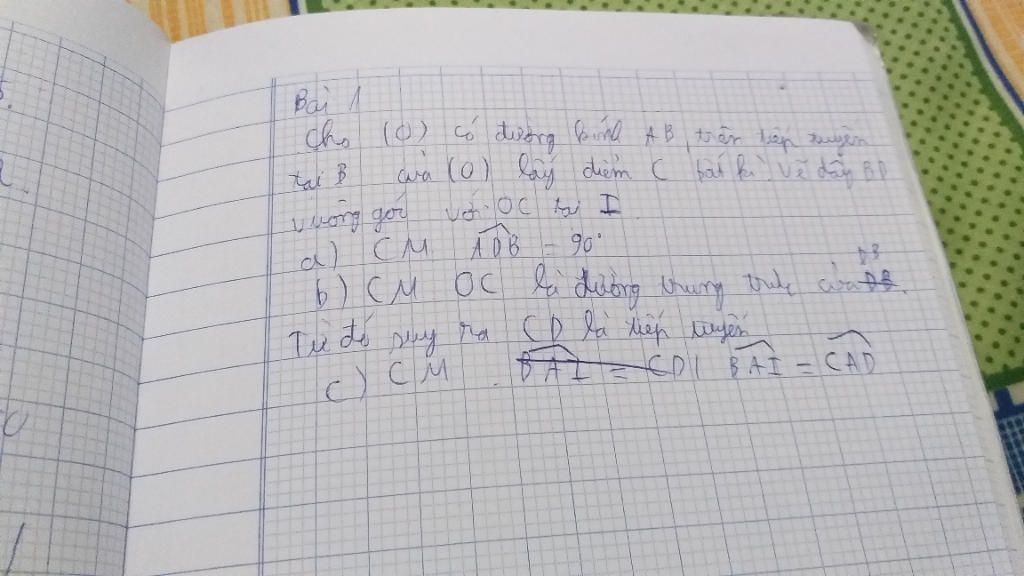 Bài 1
Cho (O) có đường kính AB, trên tiếp tuyến
tại B của (O) lấy điểm C bất kì. Vẽ dây BD
vuông góc với OC tại I
a) CM ADB = 90°
DB
b) CM OC là đường trung trực của DB.
Từ đó suy ra CD là tiếp tuyến
c) CM BAI = CDI BAI = CAD